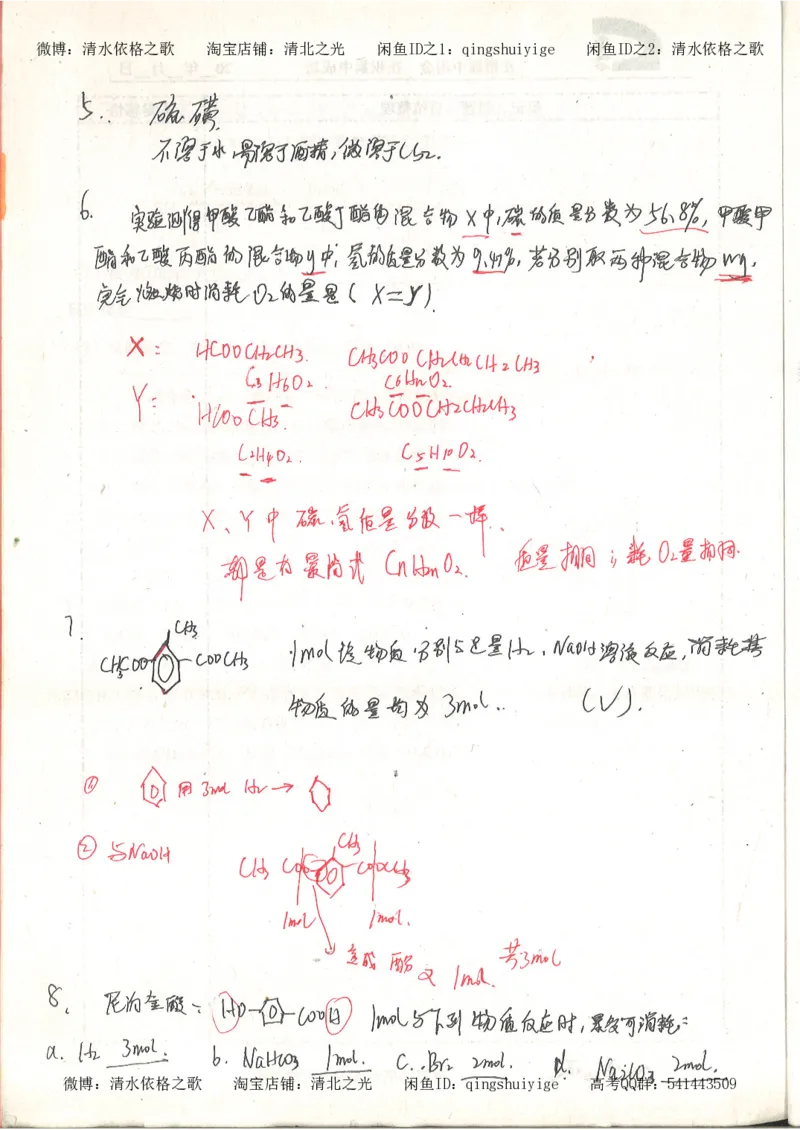 微博：清水依格之歌 淘宝店铺：清北之光 闲鱼ID之1：qingshuiyige 闲鱼ID之2：清水依格之歌
5. 硫磺
不溶于水,易溶于酒精,微溶于CS2.
6. 实验测得甲酸乙酯和乙酸丁酯的混合物X中,碳的质量分数为56.8%,甲酸甲
酯和乙酸丙酯的混合物y中,氢的质量分数为9.47%,若分别取两种混合物wg,
完全燃烧时消耗O2的量是( X=Y ).
X: HCOOCH2CH3. CH3COOCH2CH2CH2CH3
C3H6O2. C6H12O2.
Y: HCOOCH3. CH3COOCH2CH2CH3
C2H4O2. C5H10O2.
X、Y中碳、氢质量分数一样、
都是为最简式CnH2nO2. 质量相同;耗O2量相同.
7.
CH3
CH3COO COOCH3 1mol该物质分别与足量H2、NaOH溶液反应,消耗其
物质的量均为3mol.. (√).
① 用3mol H2→
② 与NaOH
CH3
CH3 COO COOCH3
1mol 1mol.
变成酚 又1mol. 共3mol
8. 尼泊金酸: HO COOH 1mol与下列物质反应时,最多可消耗:
a. H2 3mol. b. NaHCO3 1mol. c. Br2 2mol. d. Na2CO3 2mol.
微博：清水依格之歌 淘宝店铺：清北之光 闲鱼ID：qingshuiyige 高考QQ群：541443509